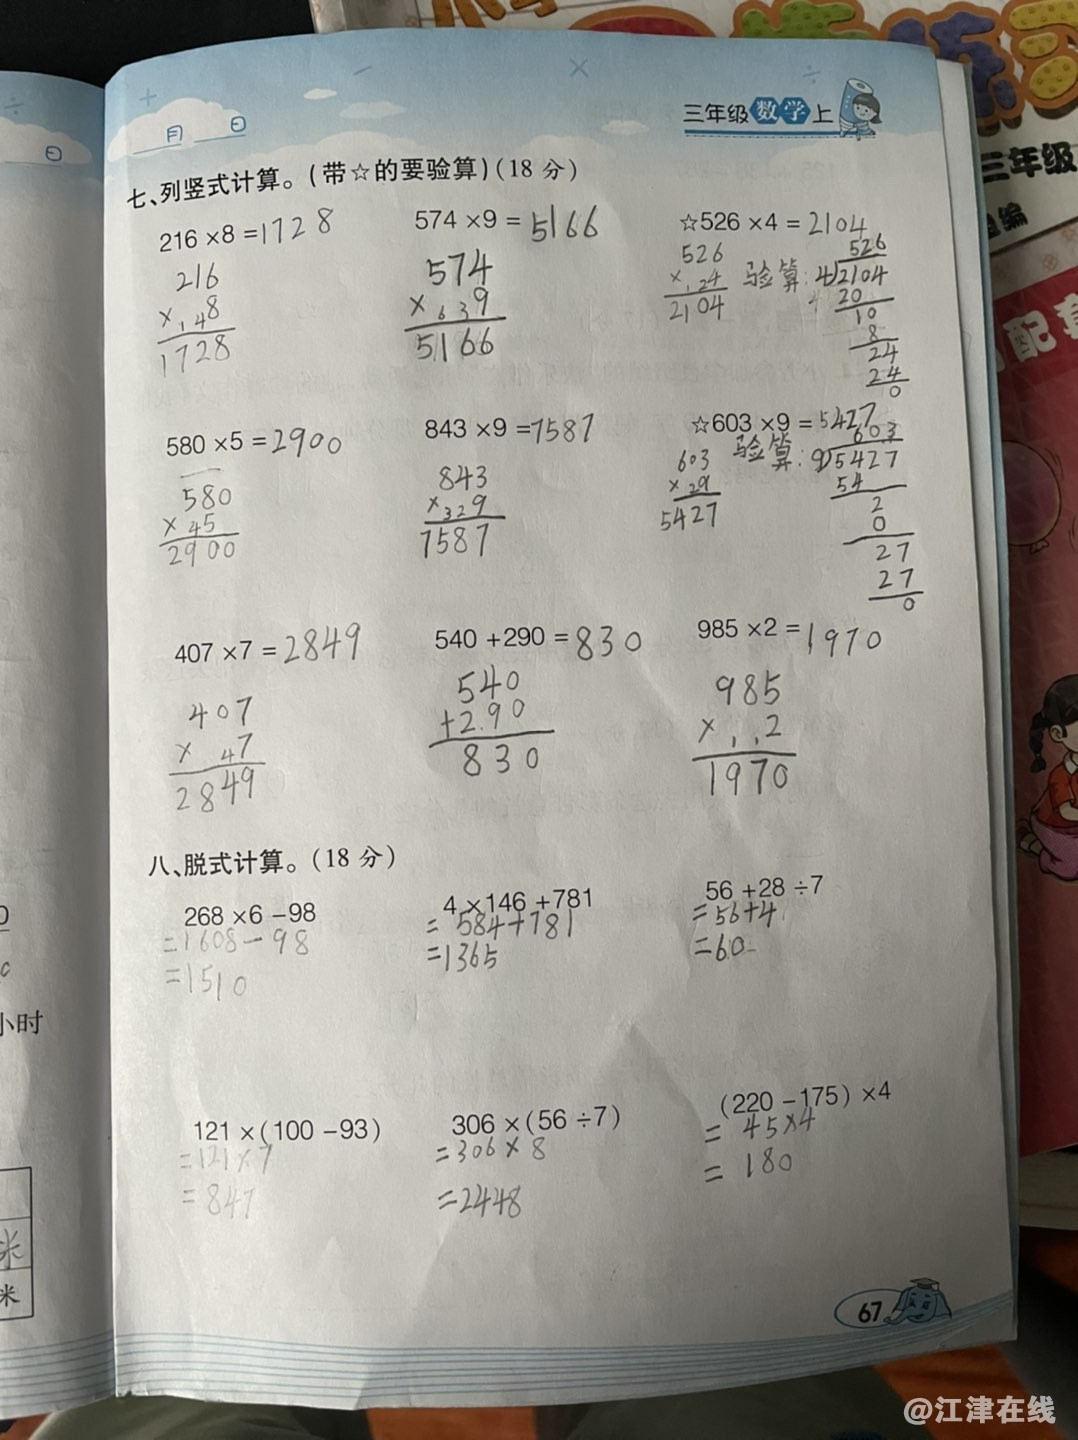 三年级数学上
月 日
日
三年级
编
配套
七、列竖式计算。(带☆的要验算)(18 分)
216 ×8 =1728
216
× 148
1728
574 ×9 = 5166
574
× 639
5166
☆526 ×4 = 2104
526
× 124
2104
验算:
526
4)2104
20
10
8
24
24
0
580 ×5 =2900
580
× 45
2900
843 ×9 =7587
843
× 329
7587
☆603 ×9 = 5427
603
× 29
5427
验算:
603
9)5427
54
2
0
27
27
0
407 ×7 = 2849
407
× 47
2849
540 +290 = 830
540
+2.90
830
985 ×2 = 1970
985
× 112
1970
八、脱式计算。(18 分)
268 ×6 −98
=1608−98
=1510
4 ×146 +781
= 584+781
=1365
56 +28 ÷7
=56+4
=60
121 ×(100 −93)
=121×7
=847
306 ×(56 ÷7)
=306×8
=2448
(220 −175) ×4
= 45×4
= 180
小时
米
米
67
@江津在线